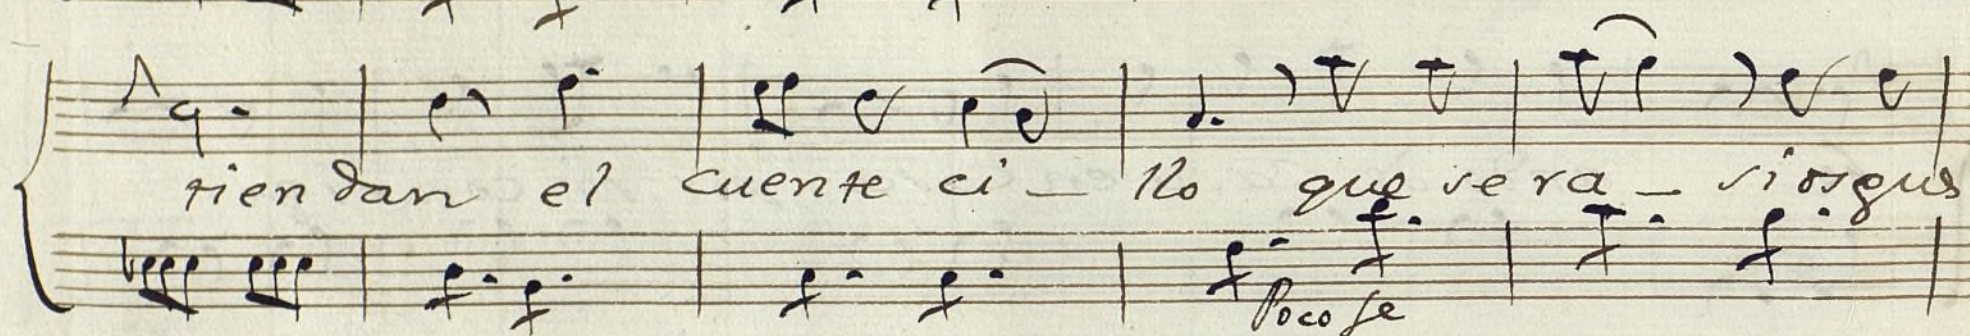 tien dan el cuente ci _ llo que se ra _ si os gus
Poco fe